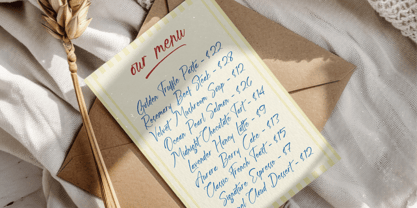 our menu
Golden Truffle Pasta - $22
Rosemary Beef Steak - $28
Velvet Mushroom Soup - $12
Ocean Pearl Salmon - $26
Midnight Chocolate Tart - $14
Lavender Honey Latte - $9
Aurora Berry Cake - $13
Classic French Toast - $15
Signature Espresso - $7
Cloud Dessert - $12